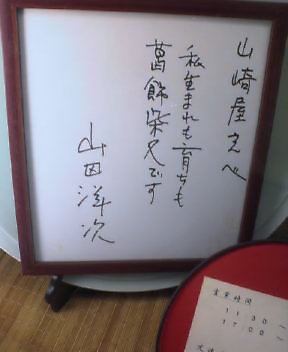 山崎屋さんへ
私生まれも育ちも
葛飾柴又です
山田洋次
営業時間
11:30～
17:00～